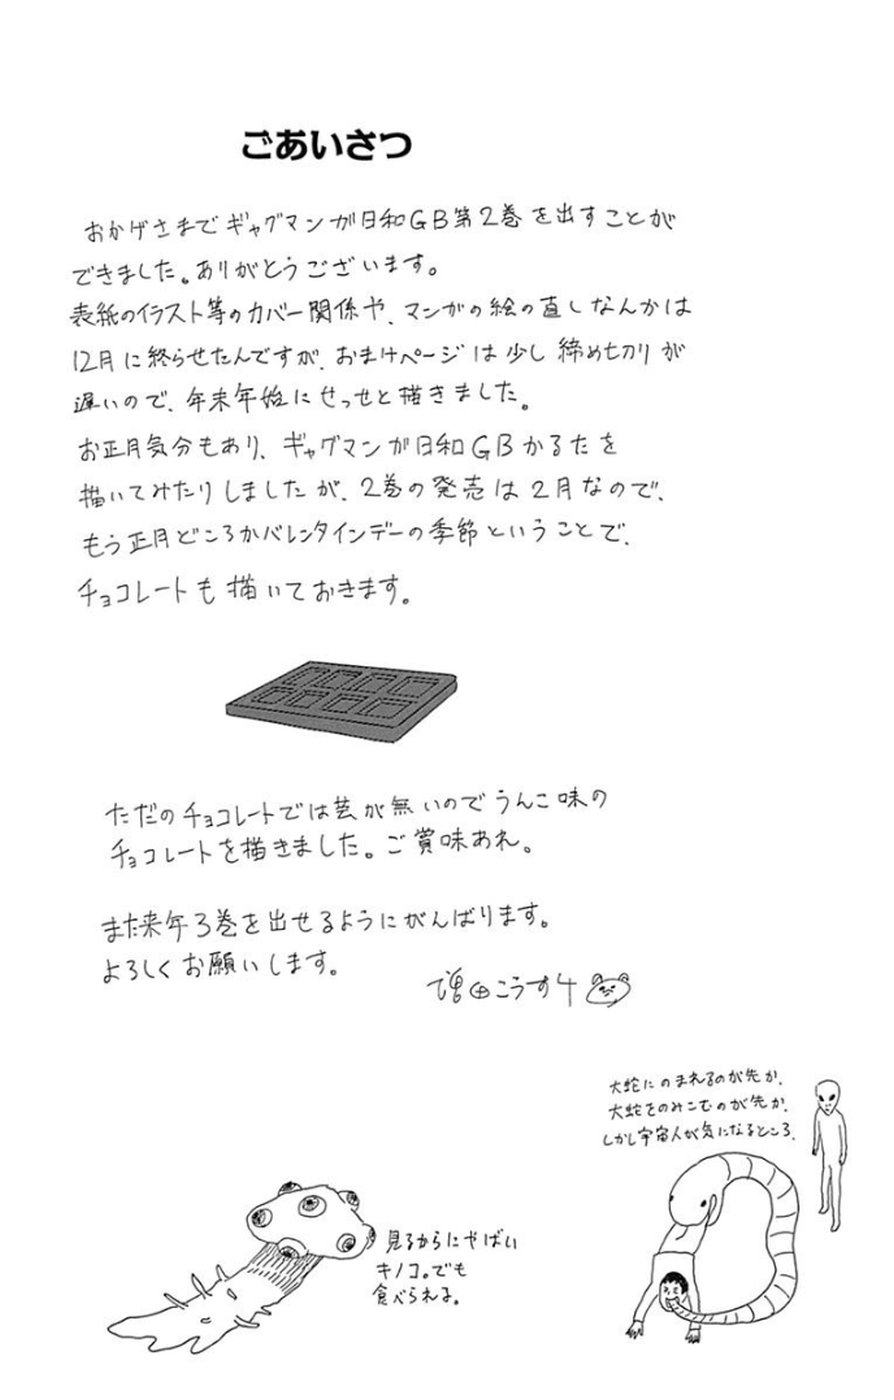 ごあいさつ
おかげさまでギャグマンガ日和GB第2巻を出すことが
できました。ありがとうございます。
表紙のイラスト等のカバー関係や、マンガの絵の直しなんかは
12月に終らせたんですが、おまけページは少し締め切りが
遅いので、年末年始にせっせと描きました。
お正月気分もあり、ギャグマンガ日和GBかるたを
描いてみたりしましたが、2巻の発売は2月なので、
もう正月どころかバレンタインデーの季節ということで、
チョコレートも描いておきます。
ただのチョコレートでは芸が無いのでうんこ味の
チョコレートを描きました。ご賞味あれ。
また来年3巻を出せるようにがんばります。
よろしくお願いします。
増田こうすけ
大蛇にのまれるのが先か、
大蛇をのみこむのが先か、
しかし宇宙人が気になるところ。
見るからにやばい
キノコ。でも
食べられる。